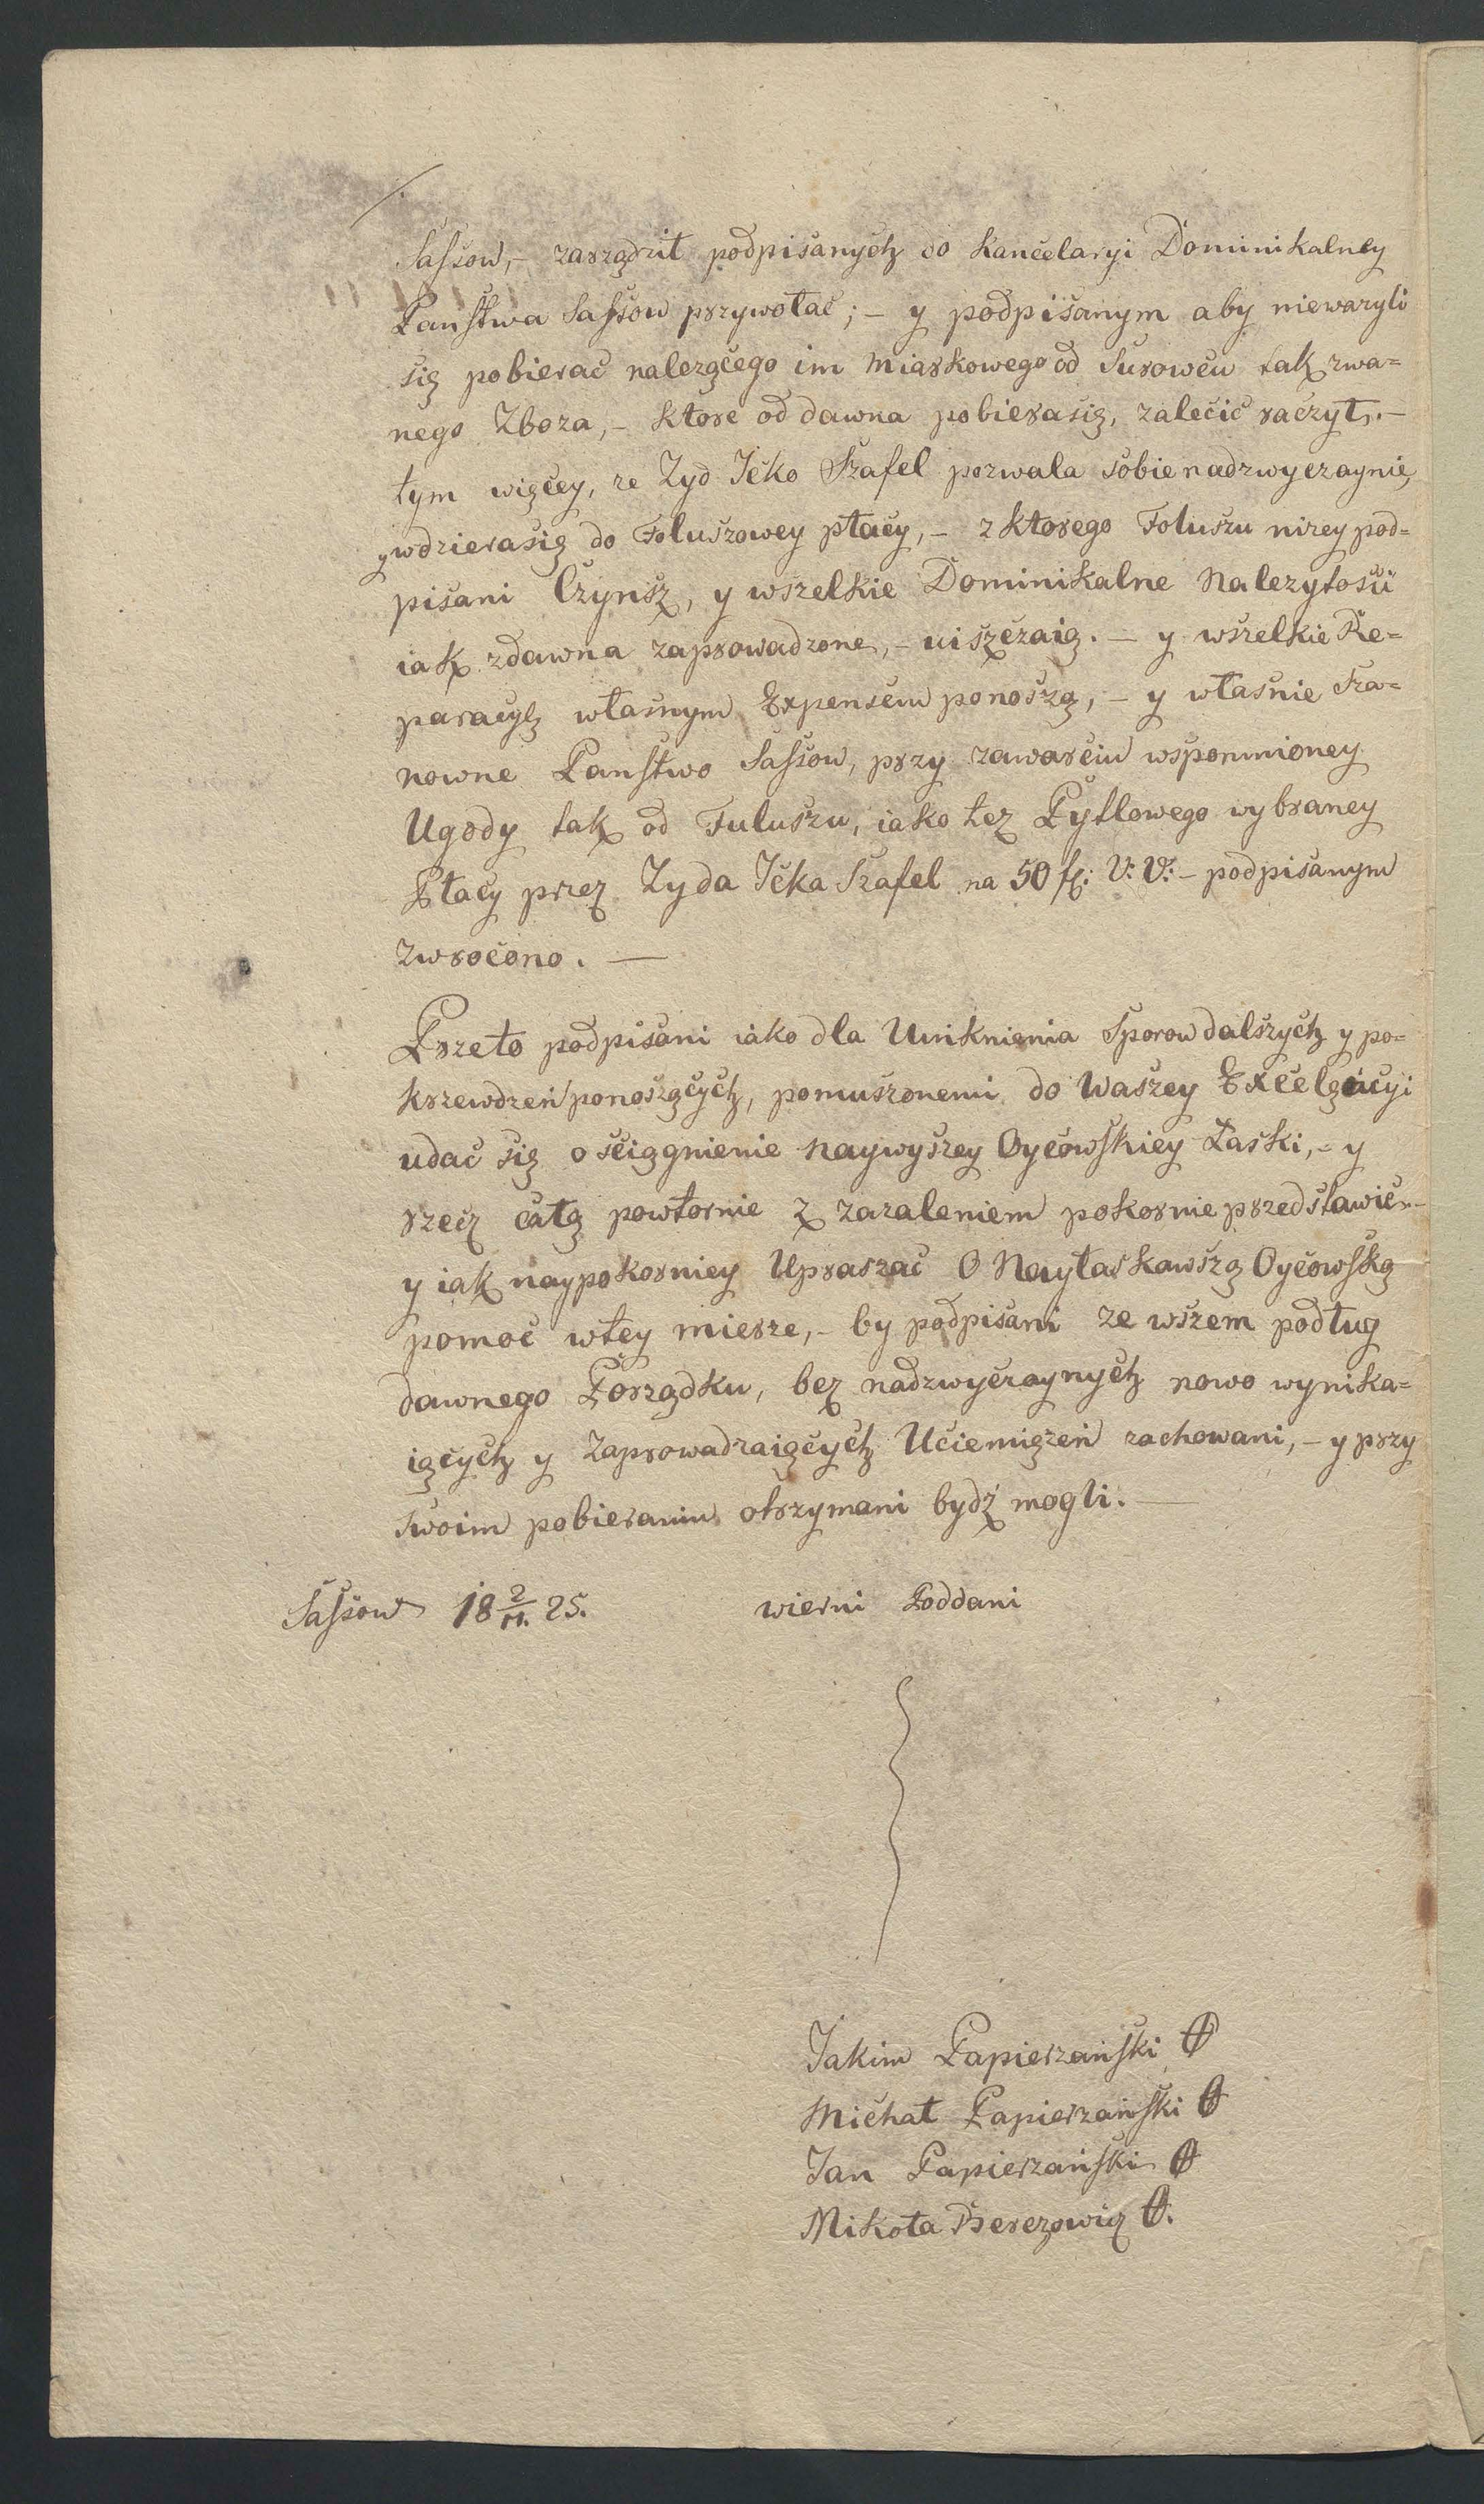 Sassow, – zarządził podpisanych do Kancelaryi Dominikalney
Państwa Sassow przywołać; – y podpisanym aby nieważyli
się pobierać należącego im Miarkowego od Surowcu tak zwa=
nego Zboza, – ktore od dawna pobierasię, zalecić raczył. –
tym więcey, ze Zyd Icko Szafel pozwala sobie nadzwyczaynie,
y wdzierasię do Foluszowey płacy, – z ktorego Foluszu nizey pod=
pisani Czynsz, y wszelkie Dominikalne Nalezytosci
iak zdawna zaprowadzone, – uiszczaią. – y wszelkie Re=
paracye własnym Expensem ponoszą, – y własnie Sza=
nowne Państwo Sassow, przy zawarciu wspomnioney
Ugody tak od Fuluszu, iako tez Pytlowego wybraney
Płacy przez Zyda Icka Szafel na 50 f: V: V: – podpisanym
zwrocono. —
Przeto podpisani iako dla Uniknienia Sporow dalszych y po=
krzewdzeń ponoszących, pomuszonemi do Waszey Excelęncyi
udać się o sciągnienie Naywyszey Oycowskiey Łaski, – y
rzecz całą powtornie z zazaleniem pokornie przedstawić –
y iak naypokorniey Upraszać O Nayłaskawszą Oycowską
pomoc wtey mierze, – by podpisani ze wszem podług
dawnego Porządku, bez nadzwyczaynych nowo wynika=
iących y Zaprowadzaiących Uciemięzeń zachowani, – y przy
swoim pobieraniu otrzymani bydź mogli. —
Sassow 18 2/11. 25. wierni Poddani
Jakim Papierzański
Michał Papierzański
Jan Papierzański
Mikoła Berezowicz